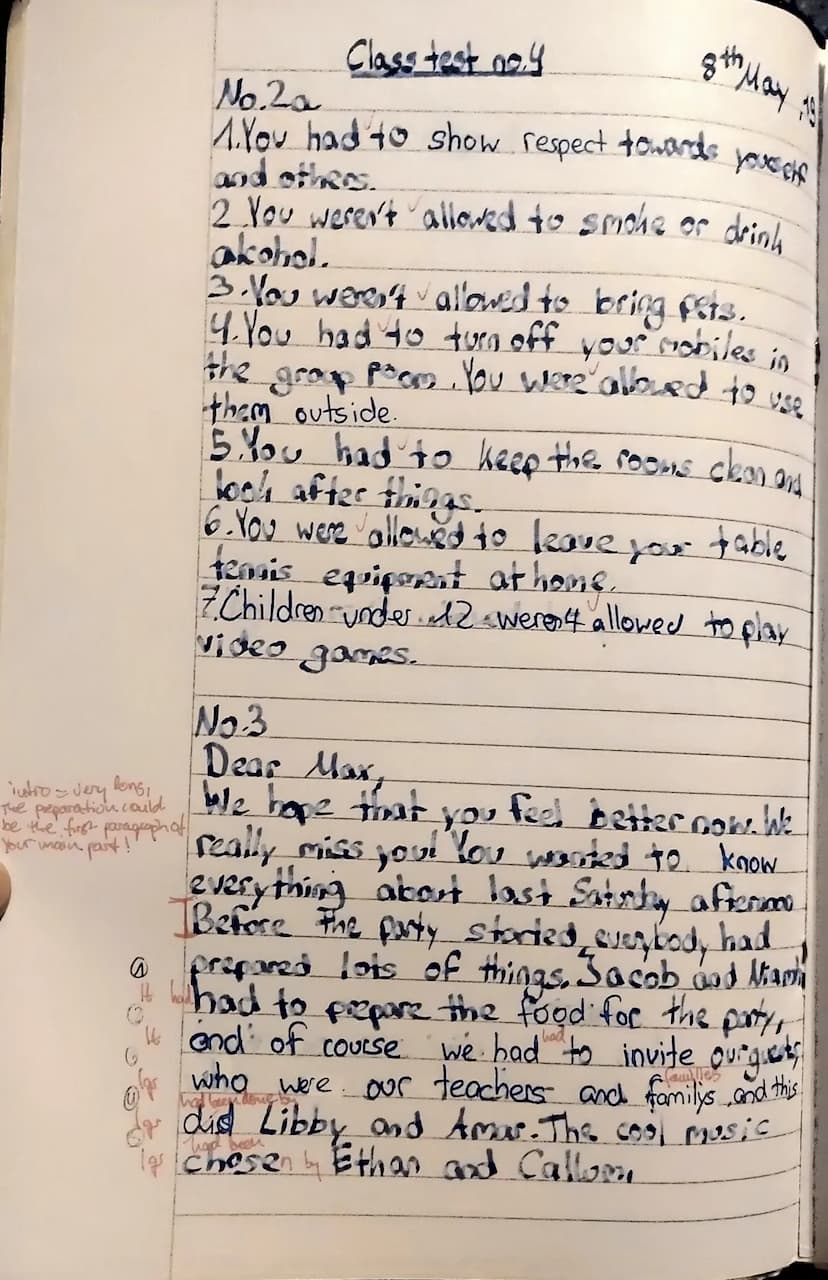 Class test no.4
8th May, 19
No.2a
1.You had to show respect towards yourself
and others.
2.You weren't allowed to smoke or drink
alkohol.
3.You weren't allowed to bring pets.
4.You had to turn off your mobiles in
the group room. You were allowed to use
them outside.
5.You had to keep the rooms clean and
look after things.
6.You were allowed to leave your table
tennis equipment at home.
7.Children under 12 weren't allowed to play
video games.
No.3
Dear Max,
We hope that you feel better now. We
intro = very long,
the preparation could
be the first paragraph of
your main part!
really miss you! You wanted to know
everything about last Saturday afternoo
Before the party started, everybody had
prepared lots of things. Jacob and Niamh
had
had to prepare the food for the party,
had
and of course we had to invite our guests,
families
who were our teachers and familys, and this
had been done by
did Libby and Amar. The cool music
had been
chosen by Ethan and Callum.